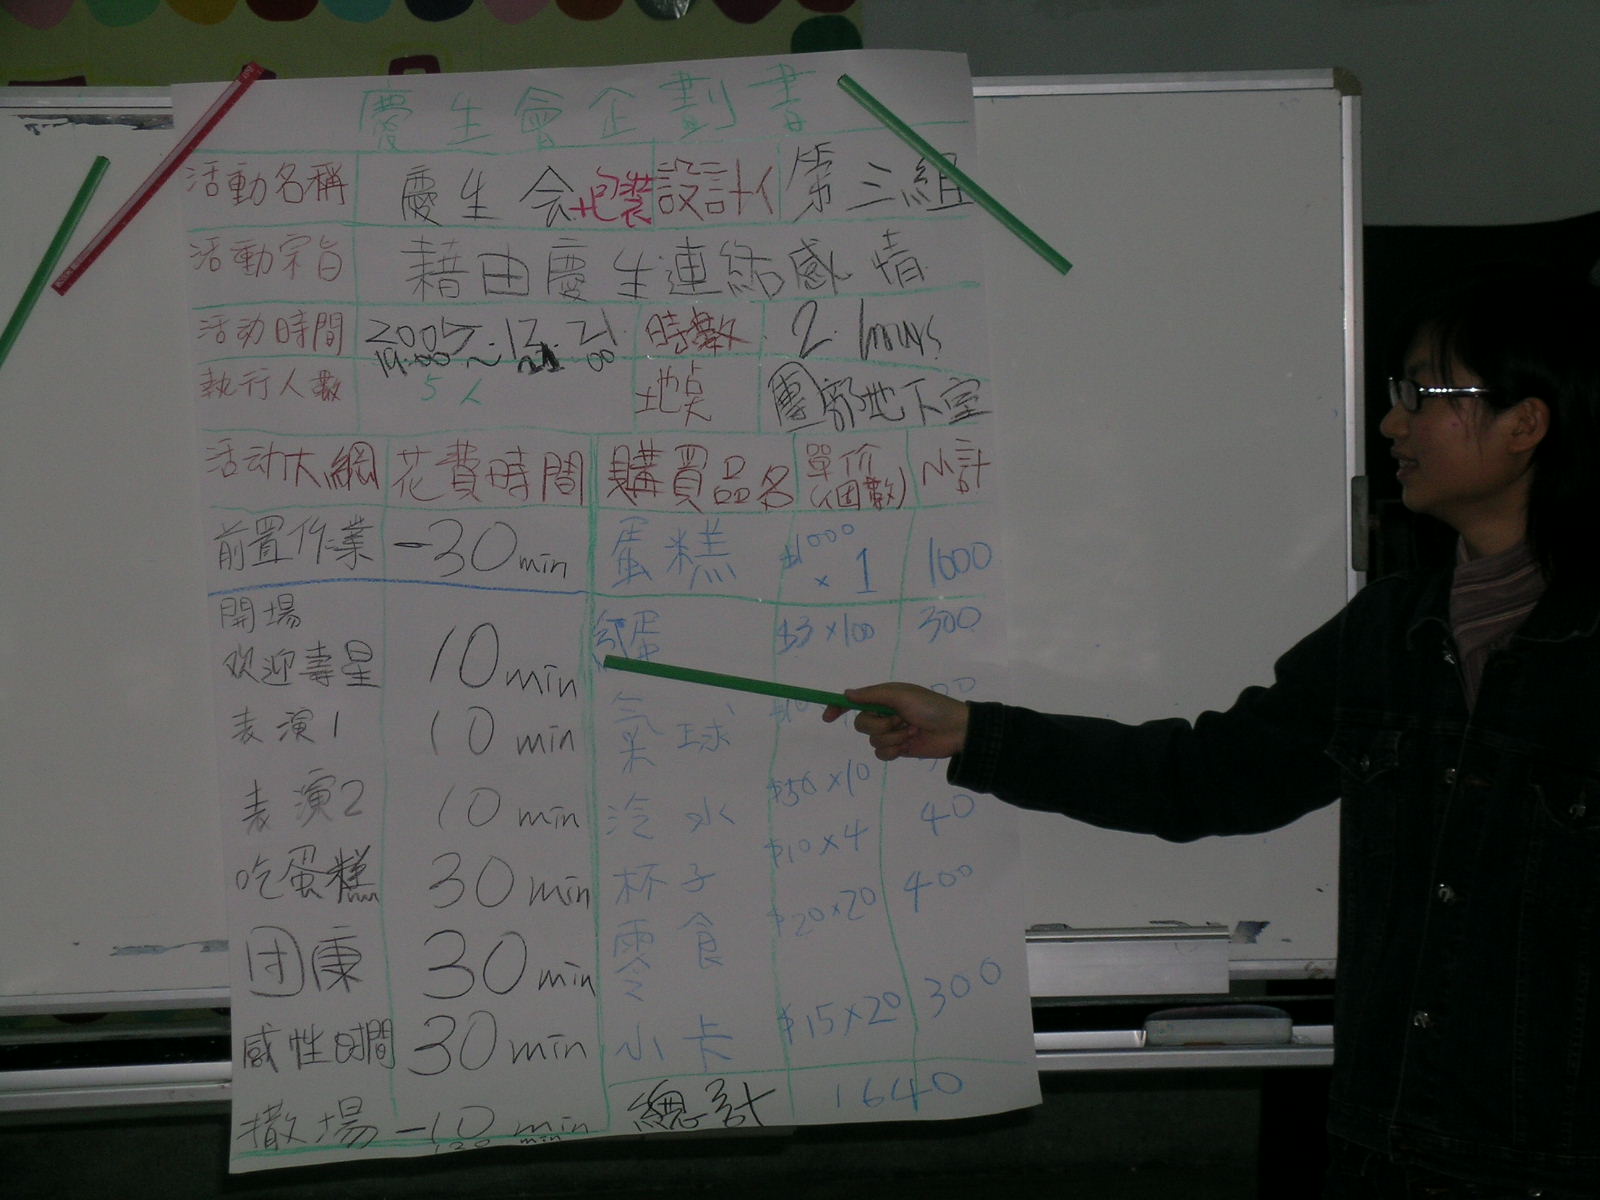 慶生會企劃書
活動名稱 慶生会+包裝 設計 第三組
活動宗旨 藉由慶生連結感情
活动時間 2005.12.21 時數 2 hours
19:00~21:00
執行人數 5人 地点 團部地下室
活动大綱 花費時間 購買品名 單价(個數) 小計
前置作業 -30min 蛋糕 $1000×1 1000
開場 紅蛋 $3×100 300
欢迎壽星 10min
表演1 10min 氣球
表演2 10min 冷水 $50×10
杯子 $10×4 40
吃蛋糕 30min 零食 $20×20 400
団康 30min
感性時間 30min 小卡 $15×20 300
撒場 -10min 總計 1640
120min